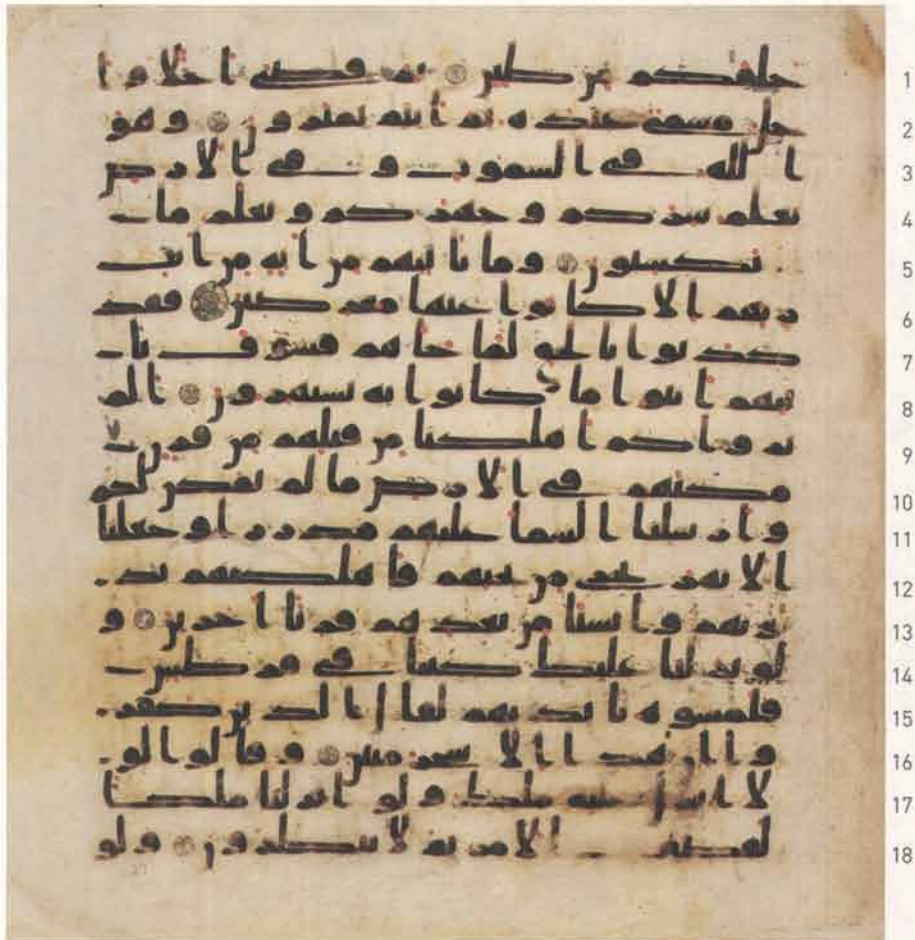 خلقكم من طين ثم قضى اجلا و ا 1
جل مسمى عنده ثم انتم تمترون و هو 2
الله في السموت و في الارض 3
يعلم سركم و جهركم و يعلم ما 4
تكسبون و ما تاتيهم من اية من ايت 5
ربهم الا كانوا عنها معرضين فقد 6
كذبوا بالحق لما جاهم فسوف يا 7
تيهم انبوا ما كانوا به يستهزون الم 8
يروا كم اهلكنا من قبلهم من قرن 9
مكنهم في الارض ما لم نمكن لكم 10
و ارسلنا السما عليهم مدرارا و جعلنا 11
الانهر تجري من تحتهم فاهلكنهم بذ 12
نوبهم و انشانا من بعدهم قرنا اخرين و 13
لو نزلنا عليك كتبا في قرطس 14
فلمسوه بايديهم لقال الذين كفر 15
وا ان هذا الا سحر مبين و قالوا لو 16
لا انزل عليه ملك و لو انزلنا ملكا 17
لقضي الامر ثم لا ينظرون و لو 18